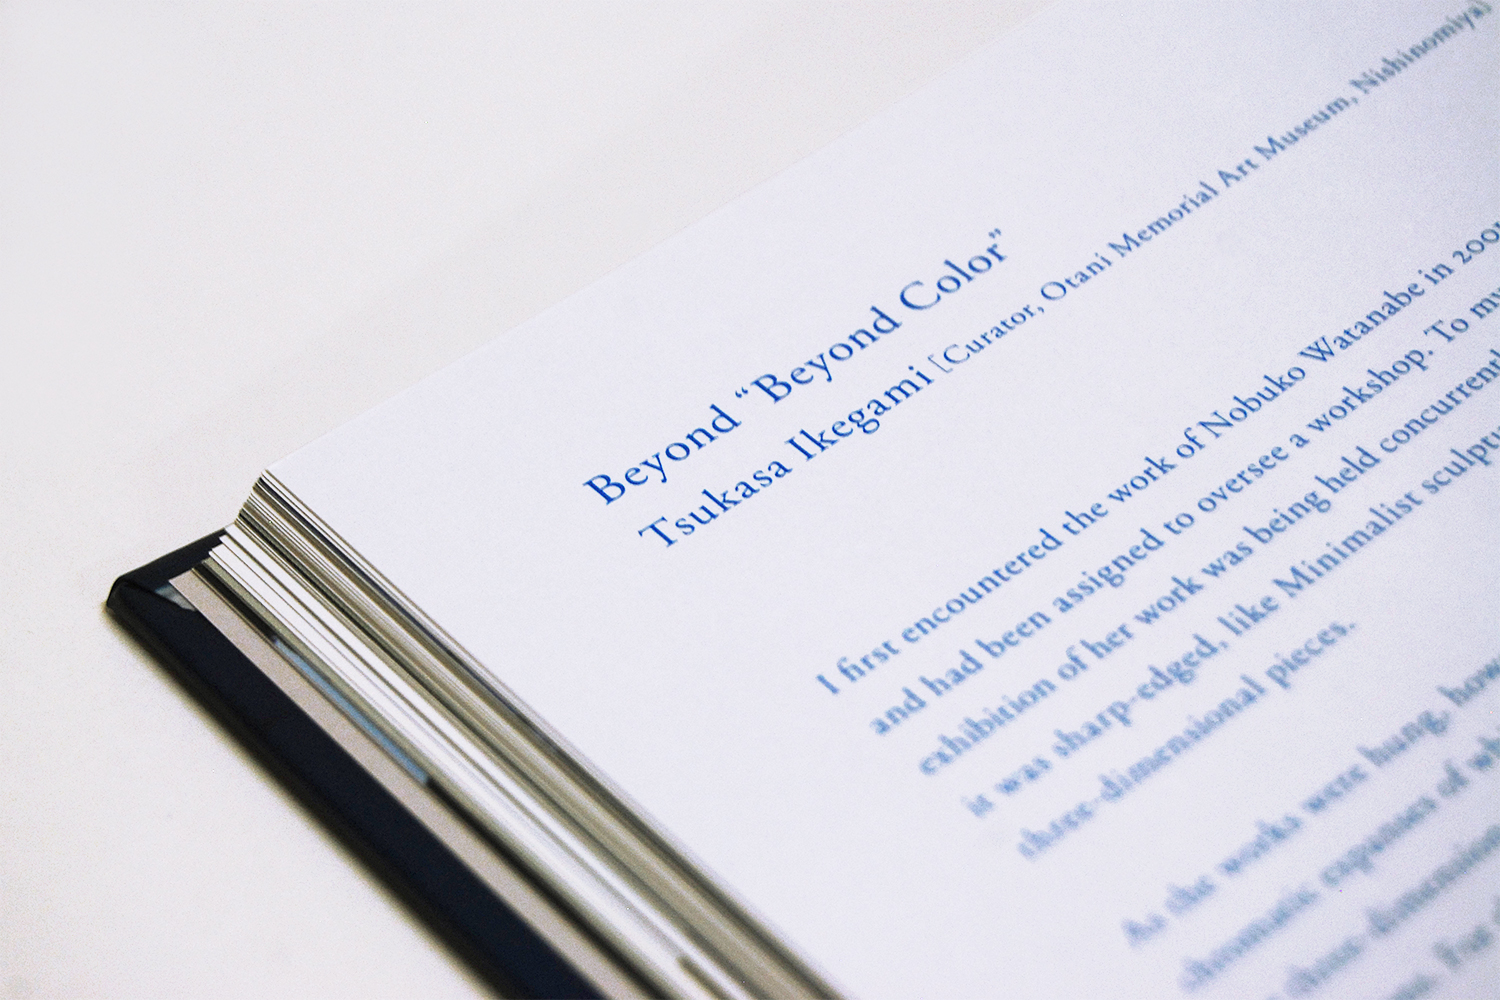 Beyond “Beyond Color”
Tsukasa Ikegami [Curator, Otani Memorial Art Museum, Nishinomiya]
I first encountered the work of Nobuko Watanabe in
and had been assigned to oversee a workshop. To
exhibition of her work was being held
it was sharp-edged, like Minimalist
three-dimensional pieces.
As the works were hung,
chromatic expanses of
three-dimension